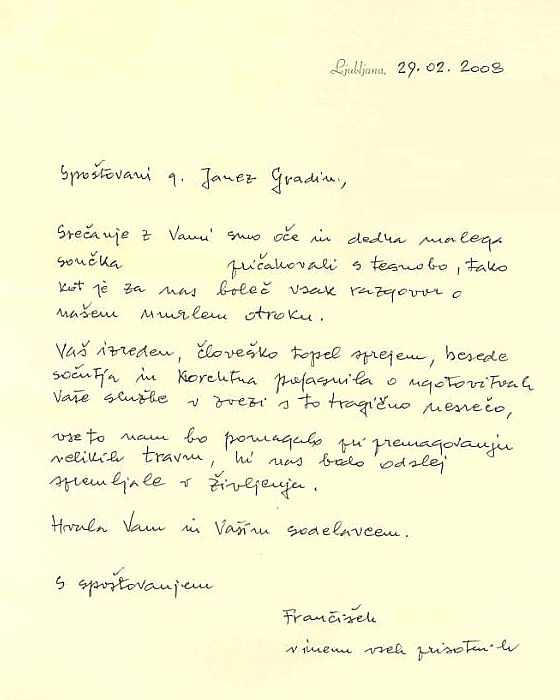 Ljubljana, 29.02.2008
Spoštovani g. Janez Gradin.,
Srečanje z Vami smo oče in dedka malega
sončka pričakovali s tesnobo, tako
kot je za nas boleč vsak razgovor o
našem umrlem otroku.
Vaš izreden, človeško topel sprejem, besede
sočutja in korektna pojasnila o ugotovitvah
Vaše službe v zvezi s to tragično nesrečo,
vse to nam bo pomagalo pri premagovanju
velikih travm, ki nas bodo odslej
spremljale v življenju.
Hvala Vam in Vašim sodelavcem.
S spoštovanjem
Frančišek
v imenu vseh prisotnih